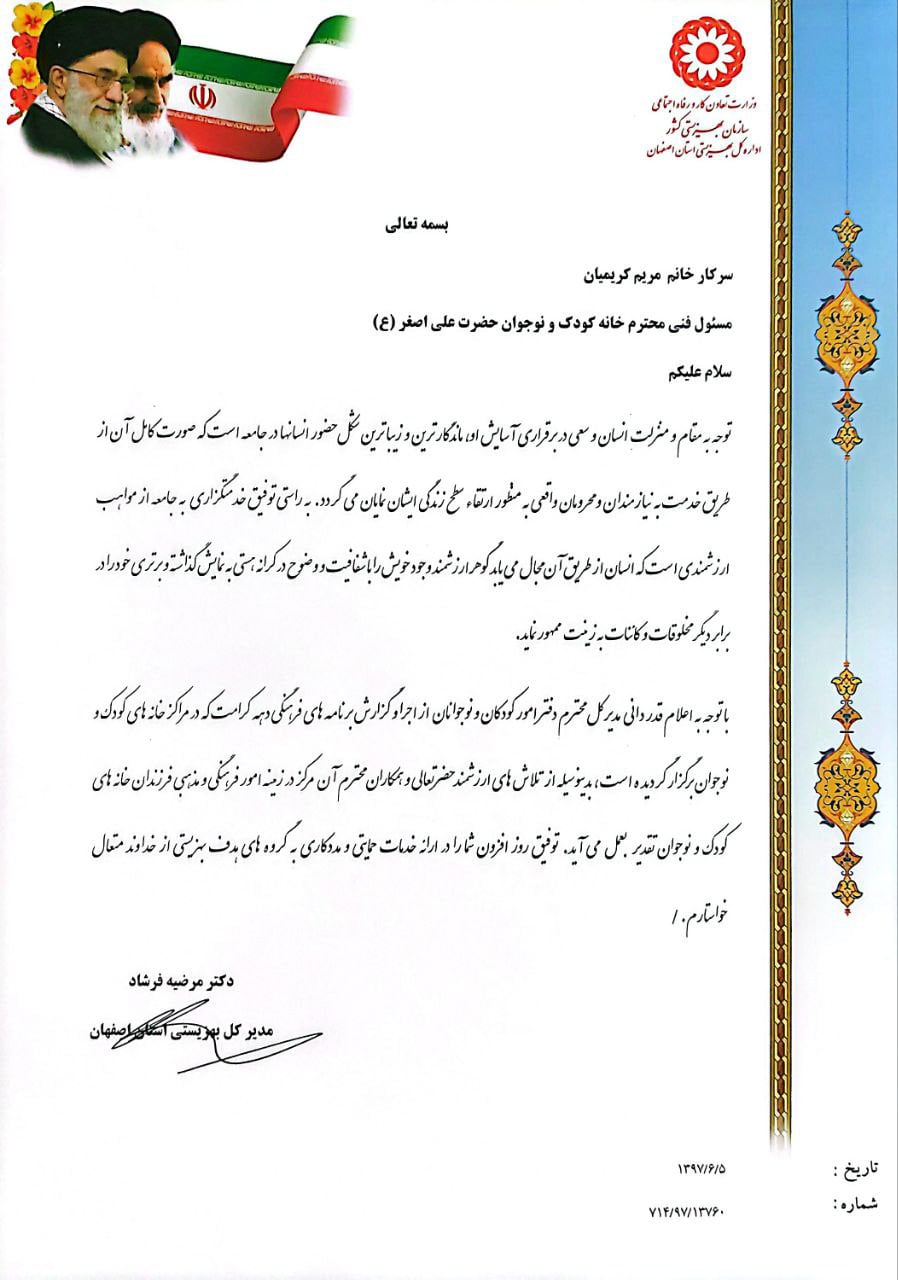 وزارت تعاون کار و رفاه اجتماعی
سازمان بهزیستی کشور
اداره کل بهزیستی استان اصفهان
بسمه تعالی
سرکار خانم مریم کریمیان
مسئول فنی محترم خانه کودک و نوجوان حضرت علی اصغر (ع)
سلام علیکم
توجه به مقام و منزلت انسان و سعی در برقراری آسایش او، ماندگارترین و زیباترین شکل حضور انسانها در جامعه است که صورت کامل آن از
طریق خدمت به نیازمندان و محرومان واقعی به منظور ارتقاء سطح زندگی ایشان نمایان می گردد. به راستی توفیق خدمتگزاری به جامعه از مواهب
ارزشمندی است که انسان از طریق آن مجال می یابد گوهر ارزشمند وجود خویش را با شفافیت و وضوح در کرانه هستی به نمایش گذاشته و برتری خود را در
برابر دیگر مخلوقات و کائنات به زینت ممهور نماید.
با توجه به اعلام قدردانی مدیرکل محترم دفتر امور کودکان و نوجوانان از اجرا و گزارش برنامه های فرهنگی دهه کرامت که در مراکز خانه های کودک و
نوجوان برگزار گردیده است، بدینوسیله از تلاش های ارزشمند حضرتعالی و همکاران محترم آن مرکز در زمینه امور فرهنگی و مذهبی فرزندان خانه های
کودک و نوجوان تقدیر بعمل می آید. توفیق روز افزون شما را در ارائه خدمات حمایتی و مددکاری به گروه های هدف بهزیستی از خداوند متعال
خواستارم. /
دکتر مرضیه فرشاد
مدیر کل بهزیستی استان اصفهان
تاریخ : ۱۳۹۷/۶/۵
شماره: ۷۱۴/۹۷/۱۳۷۶۰